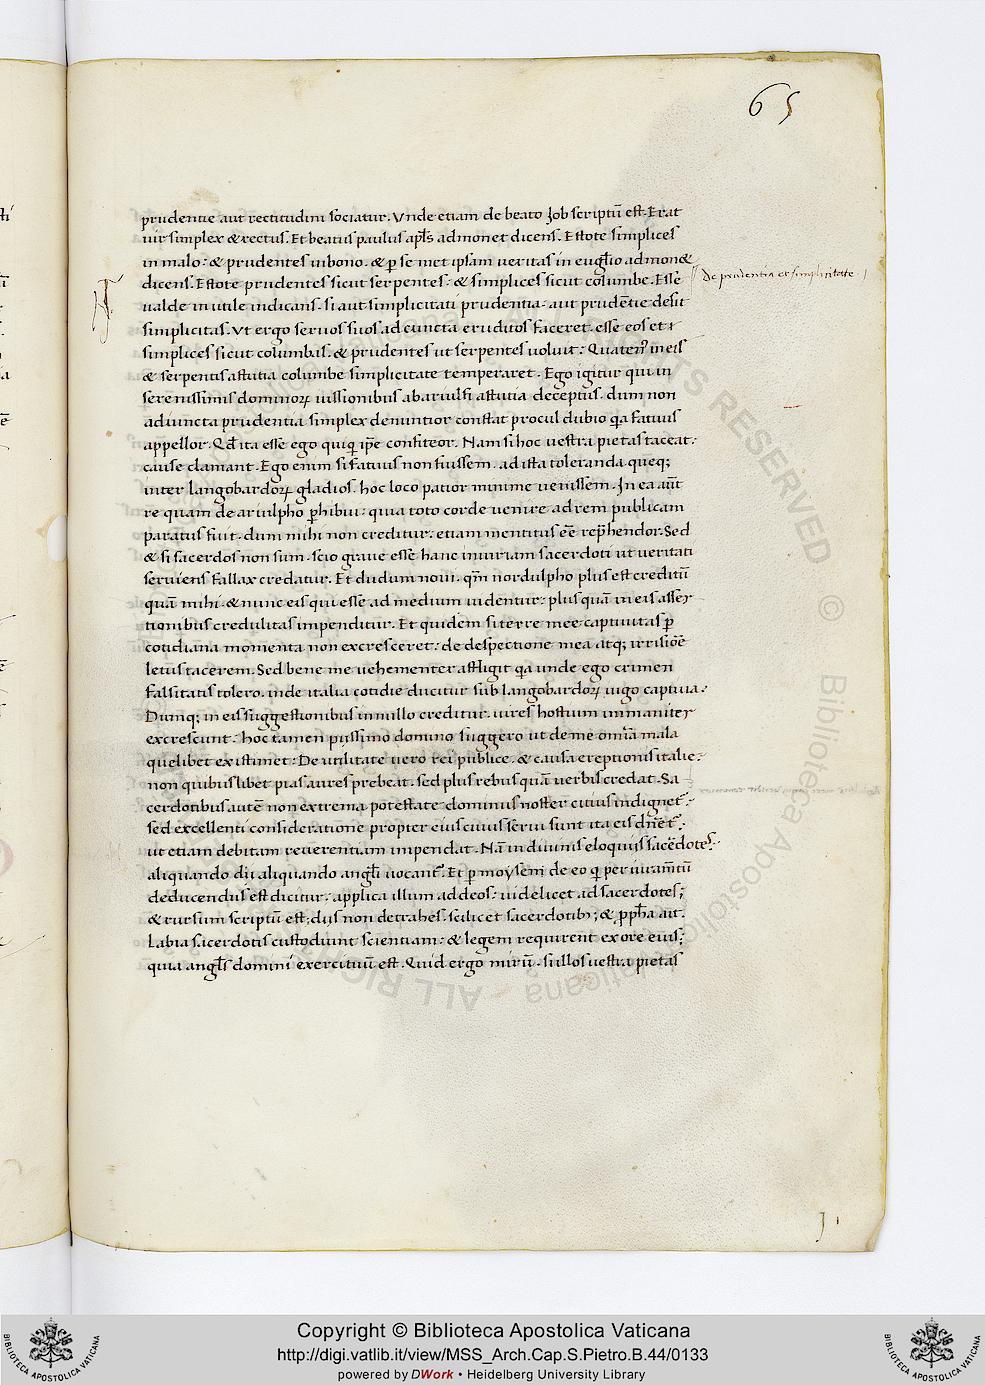 65
prudentie aut rectitudini sociatur. Vnde etiam de beato Job scriptū est. Erat
uir simplex & rectus. Et beatus paulus apl̄s admonet dicens. Estote simplices
in malo: & prudentes in bono. & p se met ipsam ueritas in euglio admon&
De prudentia et simplicitate
dicens. Estote prudentes sicut serpentes: & simplices sicut columbe. Esse
ualde inutile indicans. si aut simplicitati prudentia. aut prudēntie desit
simplicitas. Vt ergo seruos suos ad cuncta eruditos faceret. esse eos et
simplices sicut columbas. & prudentes ut serpentes uoluit: Quaten9 in eis
& serpentis astutia columbe simplicitate temperaret. Ego igitur qui in
serenissimis dominoꝝ iussionibus ab ariulfi astutia deceptus. dum non
adiuncta prudentia simplex denuntior constat procul dubio qa fatuus
appellor. Qd ita esse ego quiq ipe confiteor. Nam si hoc uestra pietas taceat:
cause clamant. Ego enim si fatuus non fuissem. ad ista toleranda. queq;
inter langobardoꝝ gladios. hoc loco patior minime uenissem. In ea aūt
re quam de ariulpho phibui: quia toto corde uenire ad rem publicam
paratus fuit. dum mihi non creditur. etiam mentitus eē rephendor. Sed
& si sacerdos non sum. scio graue esse hanc iniuriam sacerdoti ut ueritati
seruiens fallax credatur. Et dudum noui. qm̄ nordulpho plus est creditū
quā mihi. & nunc eis qui esse ad medium uidentur: plus quā in eis asser
tionibus credulitas impenditur. Et quidem si terre mee captiuitas p
cotidiana momenta non excresceret: de despectione mea atq; irrisiōe
letus tacerem. Sed bene me uehementer affligit qa unde ego crimen
falsitatis tolero. inde italia cotidie ducitur sub langobardoꝝ iugo captiua:
Dumq; in eis suggestionibus in nullo creditur. uires hostium immaniter
excrescunt: hoc tamen piissimo domino suggero ut de me om̄ia mala
quelibet existimet: De utilitate uero rei publice. & causa ereptionis italie:
non quibus libet pias aures prebeat. sed plus rebus quā uerbis credat. Sa
cerdotibus autē non ex trema potestate dominus noster citius indignet:
sed excellenti consideratione propter eius cuius serui sunt ita eis dn̄et:
ut etiam debitam reuerentiam impendat. Nā in diuinis eloquiis sacēdotes:
aliquando dii aliquando angl̄i uocant. Et p moysem de eo q per iuramtū
deducendus est dicitur: applica illum ad deos: uidelicet ad sacerdotes;
& rursum scriptū est; diis non detrahes. scilicet sacerdotib;; & ppha ait.
Labia sacerdotis custodiunt scientiam: & legem requirent ex ore eius;
quia angl̄s domini exercituū est. Quid ergo mirū. si illos uestra pietas
Copyright © Biblioteca Apostolica Vaticana
http://digi.vatlib.it/view/MSS_Arch.Cap.S.Pietro.B.44/0133
powered by DWork • Heidelberg University Library